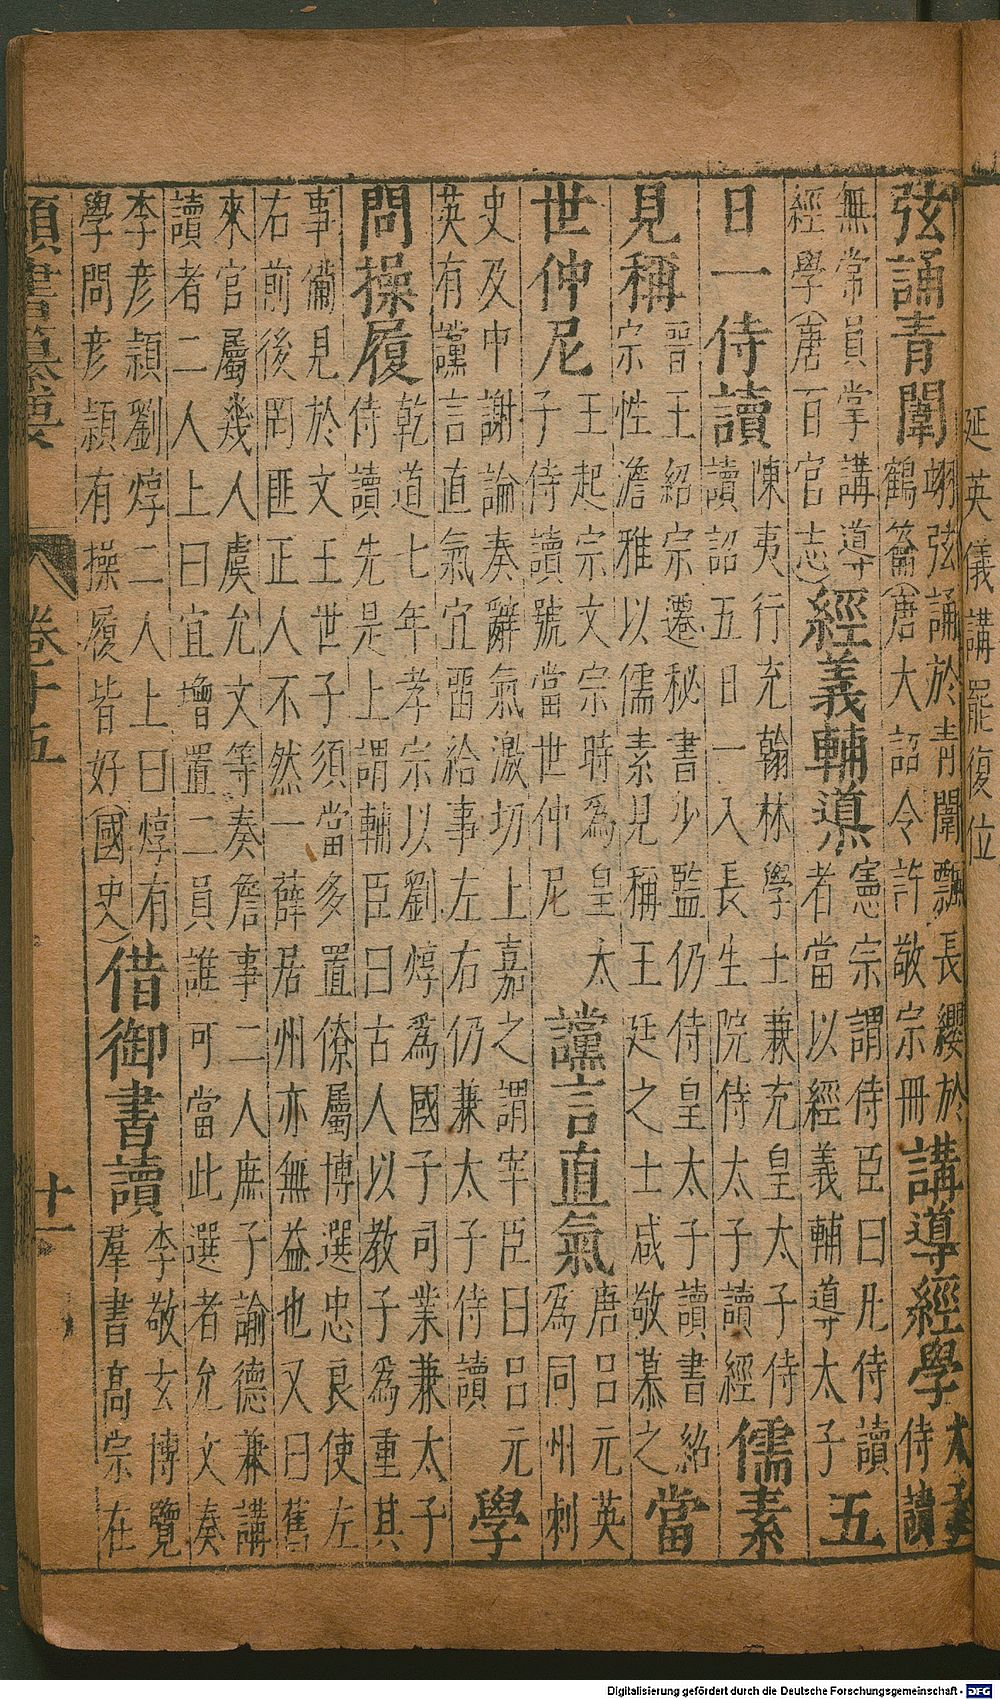 延英儀講罷復位
弦誦青闈
翊弦誦於青闈飄長纓於
鶴籥(唐大詔令許敬宗冊
講導經學
太子
侍讀
無常員掌講導
經學(唐百官志)
經義輔導
憲宗謂侍臣曰凡侍讀
者當以經義輔導太子
五
日一侍讀
陳夷行充翰林學士兼充皇太子侍
讀詔五日一入長生院侍太子讀經
儒素
見稱
晉王紹宗遷秘書少監仍侍皇太子讀書紹
宗性澹雅以儒素見稱王廷之士咸敬慕之
當
世仲尼
王起宗文宗時爲皇太
子侍讀號當世仲尼
讜言直氣
唐呂元英
爲同州刺
史及中謝論奏辭氣激切上嘉之謂宰臣曰呂元
英有讜言直氣宜畱給事左右仍兼太子侍讀
學
問操履
乾道七年孝宗以劉焞爲國子司業兼太子
侍讀先是上謂輔臣曰古人以教子爲重其
事備見於文王世子須當多置僚屬博選忠良使左
右前後罔匪正人不然一薛居州亦無益也又曰舊
來官屬幾人虞允文等奏詹事二人庶子諭德兼講
讀者二人上曰宜增置二員誰可當此選者允文奏
李彥頴劉焞二人上曰焞有
學問彥頴有操履皆好(國史)
借御書讀
李敬玄博覽
羣書高宗在
類書纂要
卷十五
十一
Digitalisierung gefördert durch die Deutsche Forschungsgemeinschaft - DFG